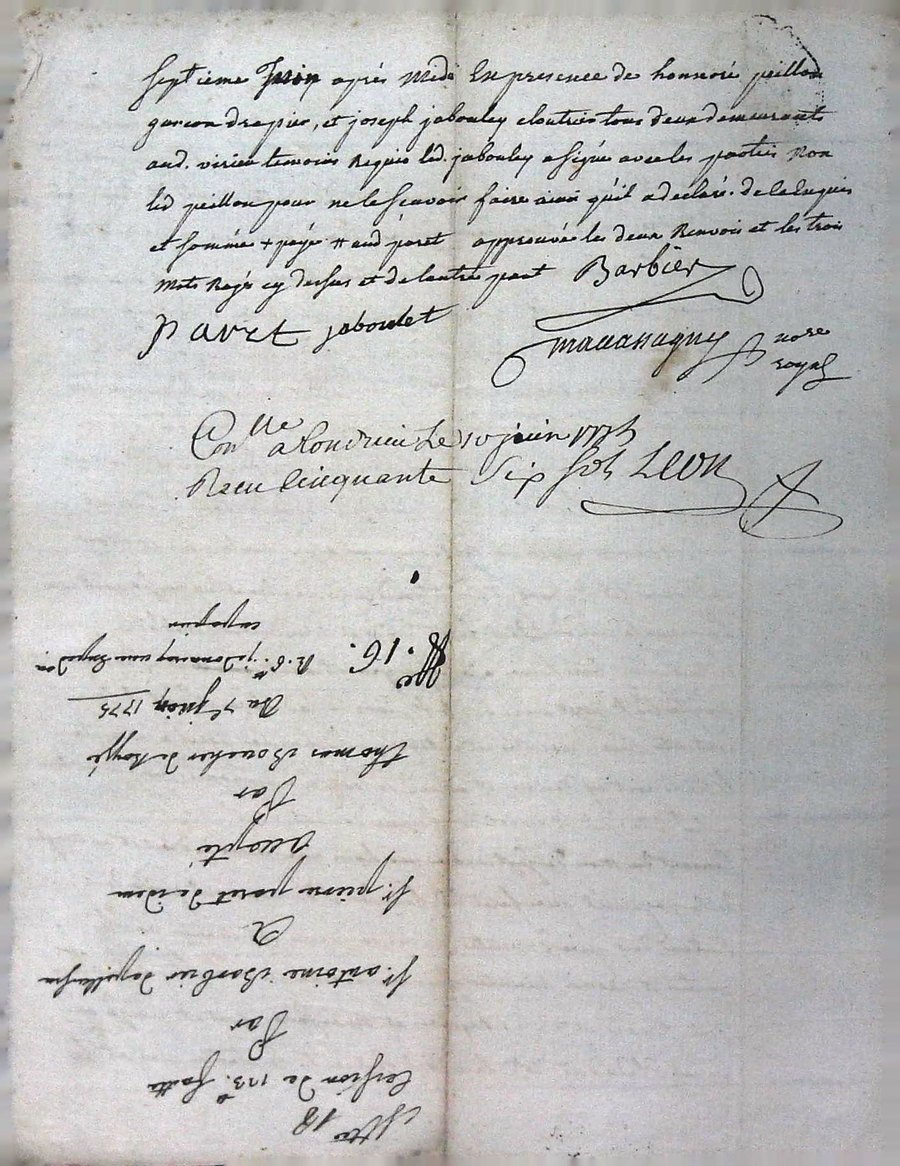 septieme Juin après Midi En presence de honnoré peillon
garcon drapier, et joseph jabouley cloutrier tous deux demeurants
aud. virieu temoins Requis led. jabouley a signé avec les parties Non
led peillon pour ne le scavoir faire ainsi qu'il a declaré. de ce Enquis
et sommés + payé # aud paret approuvée les deux Renvois et les trois
mots Rayés cy dessus et de lautre part Barbier
Paret jaboulet
notre
royal
Conlle a Condrieu Le 10 juin 1775
Recu Cinquante Six sols Leon
Cotte 18
Cession de 123.ll faitte
Par
Sr. antoine Barbier
A
Sr. pierre paret de idem
accepté
Par
thomas Boucher de
Du 7e juin 1775
16.